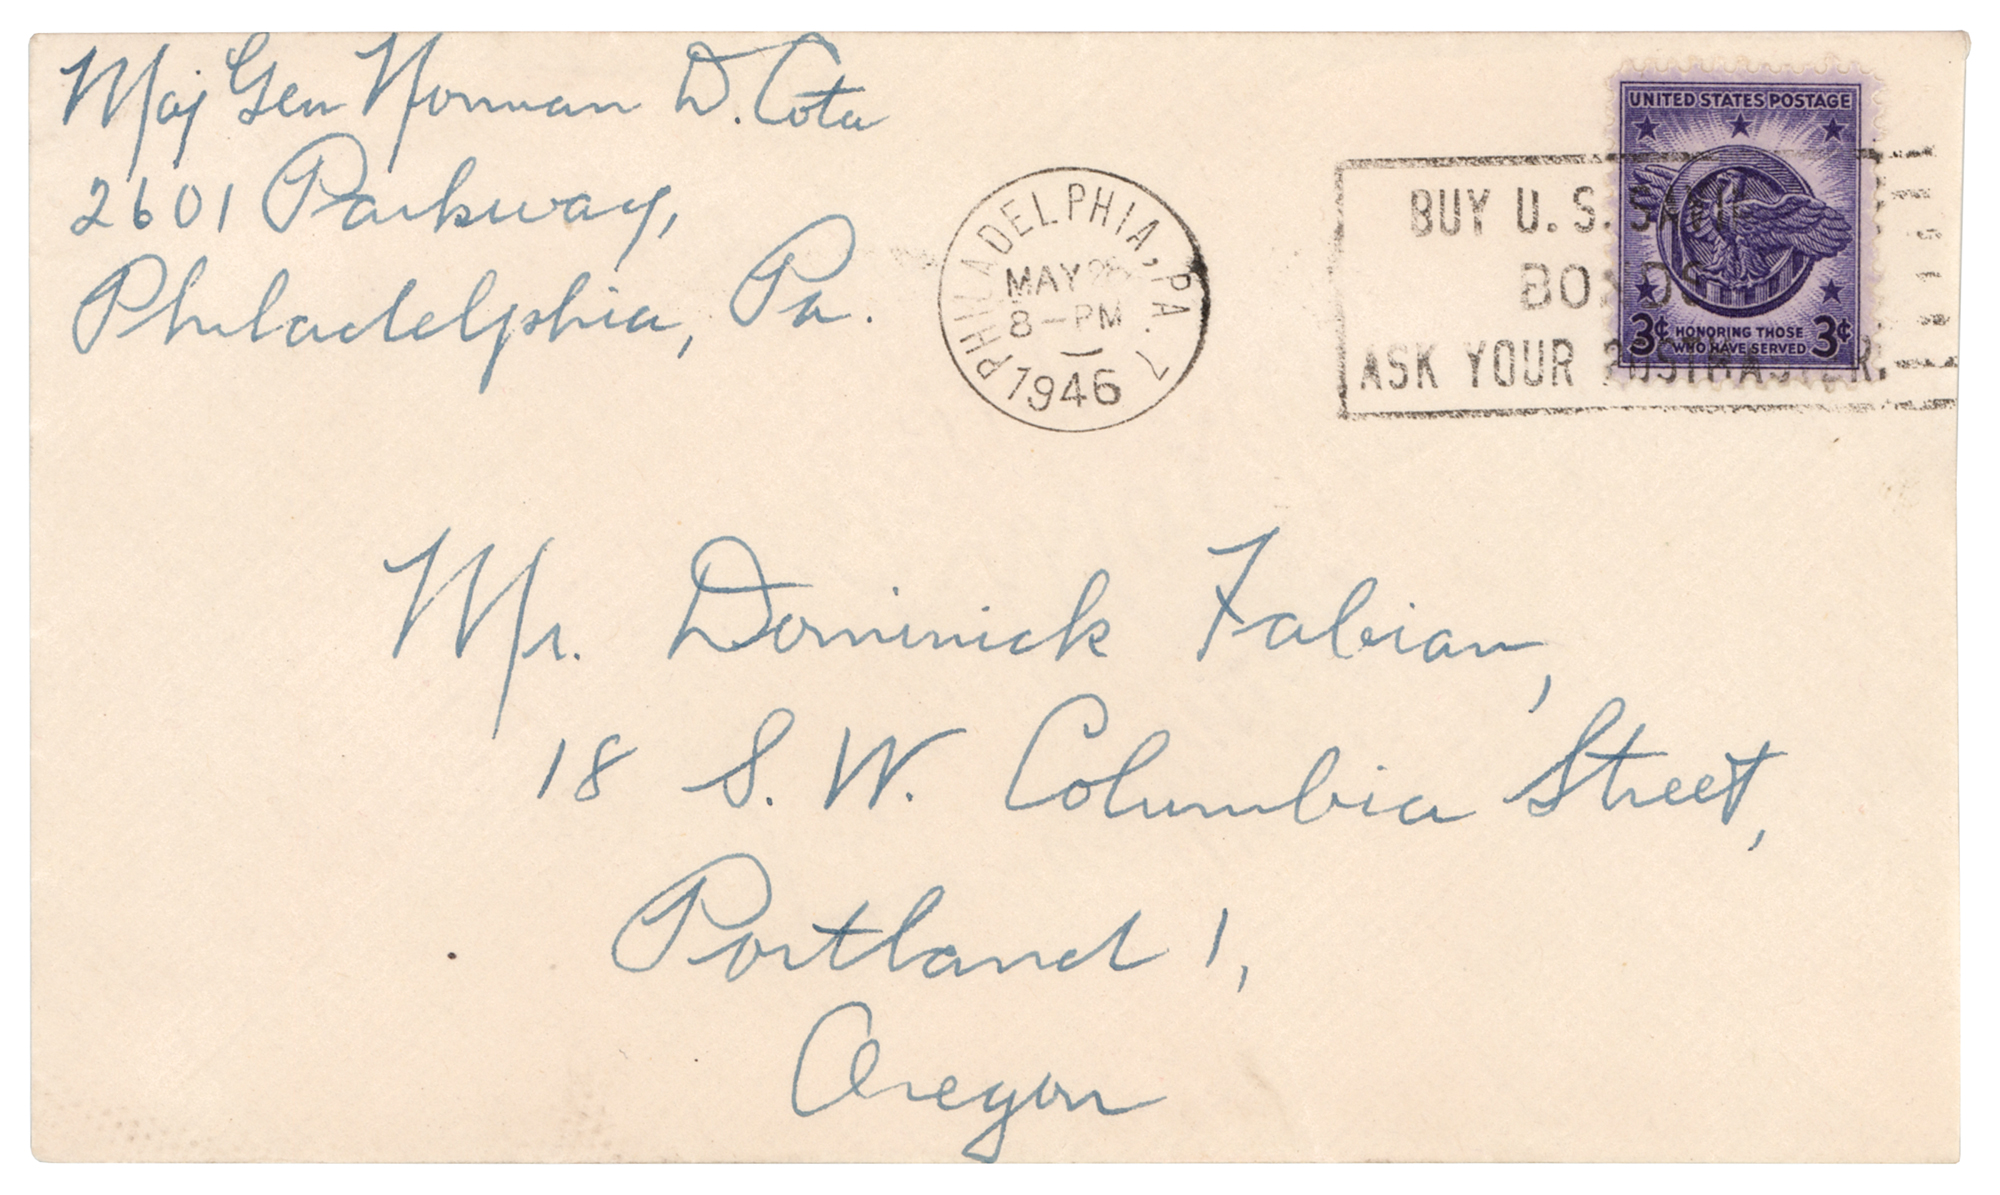 Maj Gen Norman D. Cota
2601 Parkway,
Philadelphia, Pa.
PHILADELPHIA, PA. 7
MAY
8-PM
1946
BUY U. S.
BONDS
ASK YOUR POSTMASTER.
UNITED STATES POSTAGE
3¢ HONORING THOSE 3¢
WHO HAVE SERVED
Mr. Dominick Fabian,
18 S. W. Columbia Street,
Portland 1,
Oregon